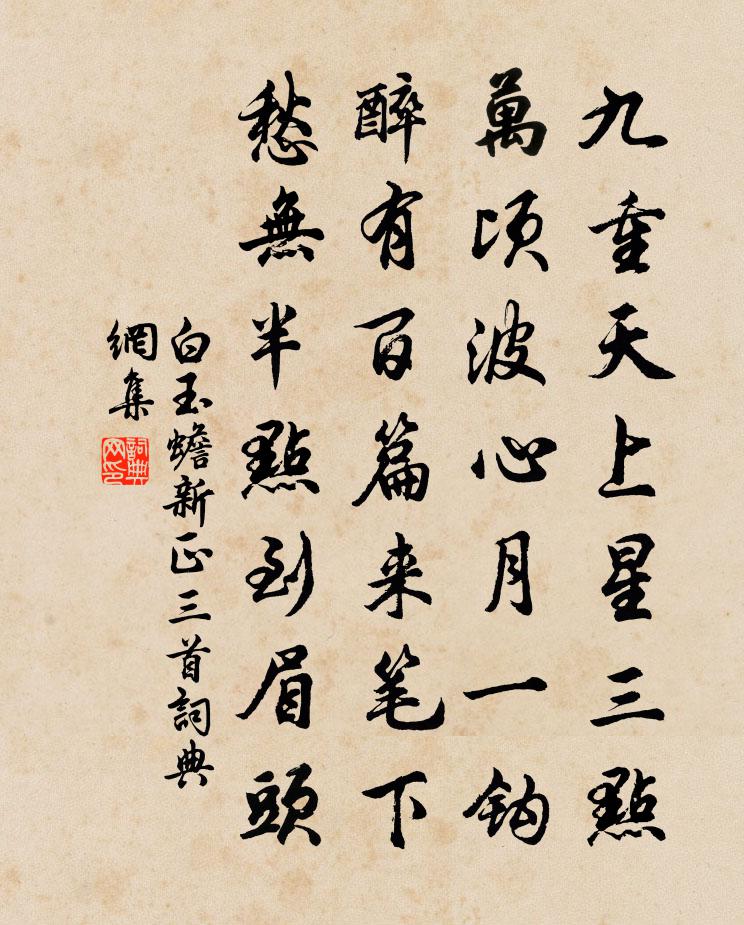 九重天上星三點
萬頃波心月一鈎
醉有百篇来笔下
愁無半點到眉頭
白玉蟾新正三首詞典
網集
詞典
网印